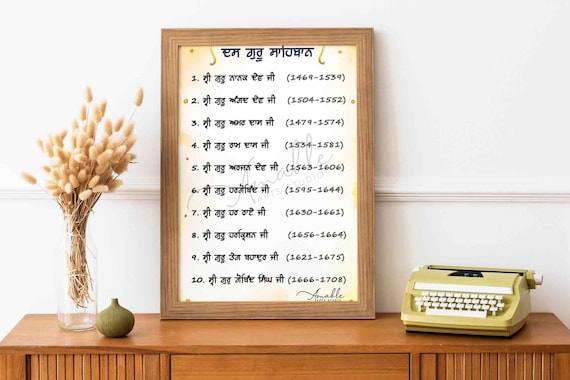 ਦਸ ਗੁਰੂ ਸਾਹਿਬਾਨ
1. ਸ੍ਰੀ ਗੁਰੂ ਨਾਨਕ ਦੇਵ ਜੀ (1469-1539)
2. ਸ੍ਰੀ ਗੁਰੂ ਅੰਗਦ ਦੇਵ ਜੀ (1504-1552)
3. ਸ੍ਰੀ ਗੁਰੂ ਅਮਰ ਦਾਸ ਜੀ (1479-1574)
4. ਸ੍ਰੀ ਗੁਰੂ ਰਾਮ ਦਾਸ ਜੀ (1534-1581)
5. ਸ੍ਰੀ ਗੁਰੂ ਅਰਜਨ ਦੇਵ ਜੀ (1563-1606)
6. ਸ੍ਰੀ ਗੁਰੂ ਹਰਗੋਬਿੰਦ ਜੀ (1595-1644)
7. ਸ੍ਰੀ ਗੁਰੂ ਹਰ ਰਾਏ ਜੀ (1630-1661)
8. ਸ੍ਰੀ ਗੁਰੂ ਹਰਕ੍ਰਿਸ਼ਨ ਜੀ (1656-1664)
9. ਸ੍ਰੀ ਗੁਰੂ ਤੇਗ ਬਹਾਦੁਰ ਜੀ (1621-1675)
10. ਸ੍ਰੀ ਗੁਰੂ ਗੋਬਿੰਦ ਸਿੰਘ ਜੀ (1666-1708)
Amable
ARTS STUDIO